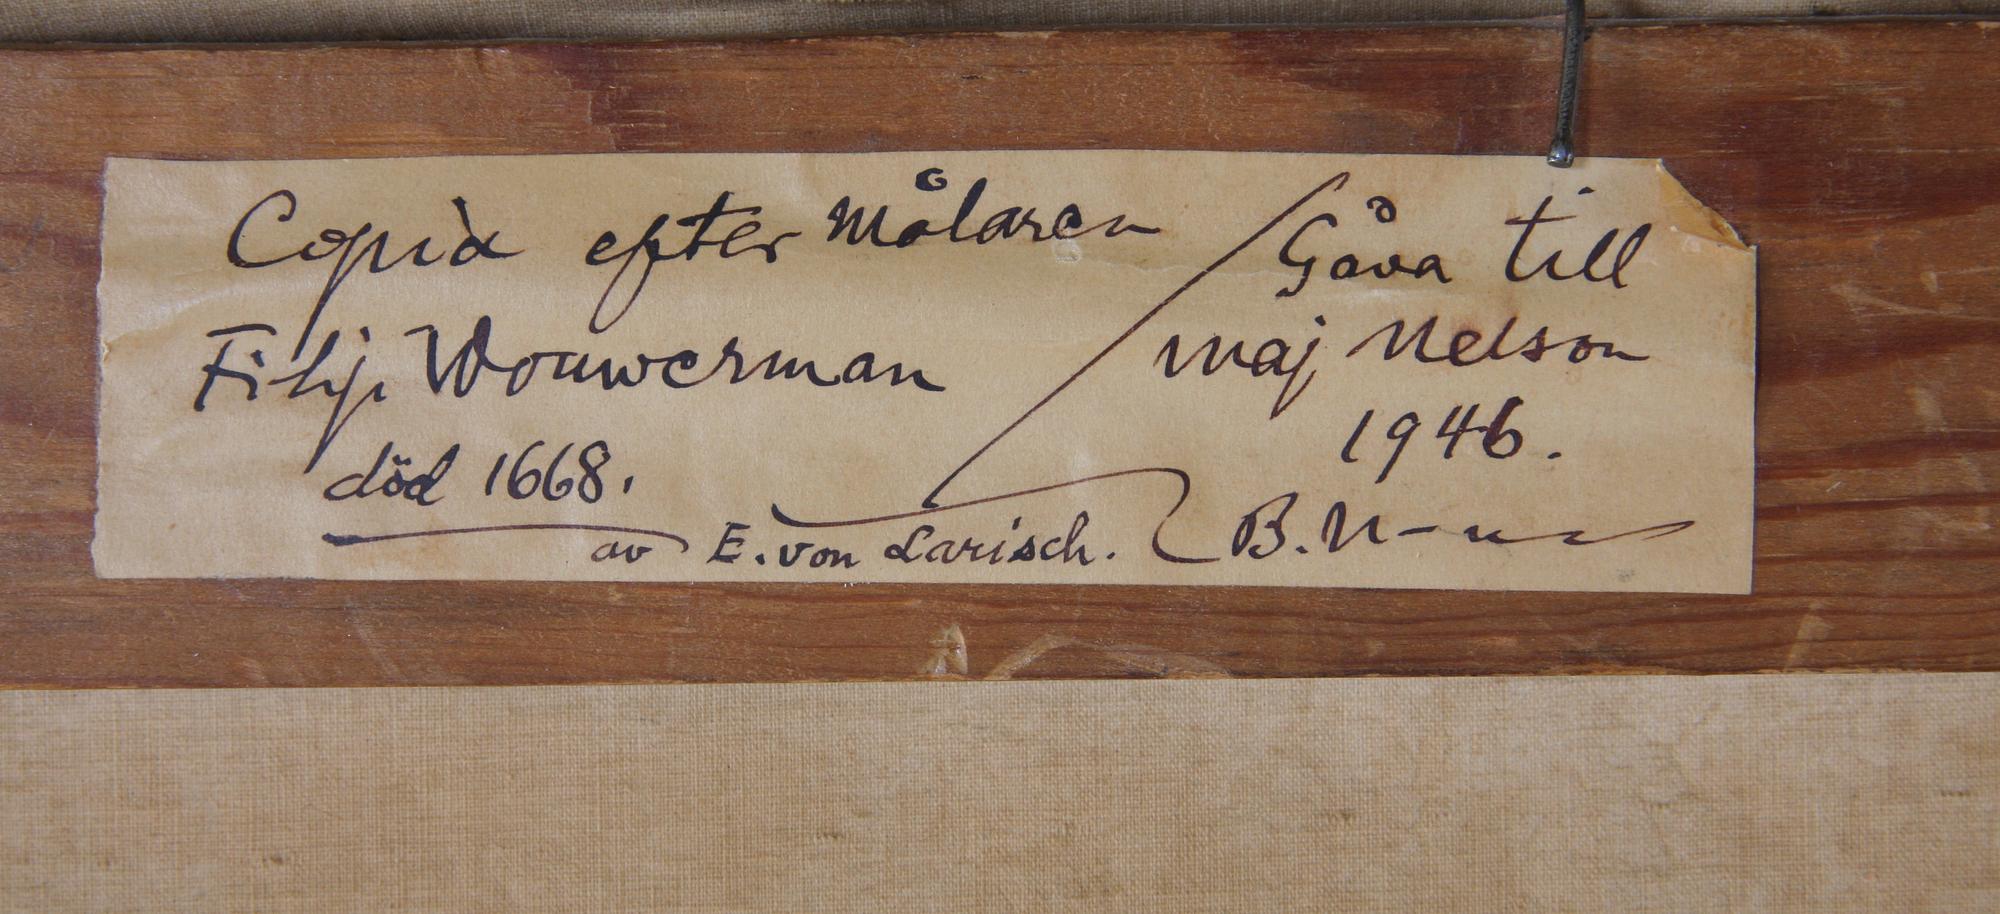 Copia efter målaren
Filip Wouwerman
död 1668.
av E. von Larisch.
Gåva till
Maj Nelson
1946.
B. N